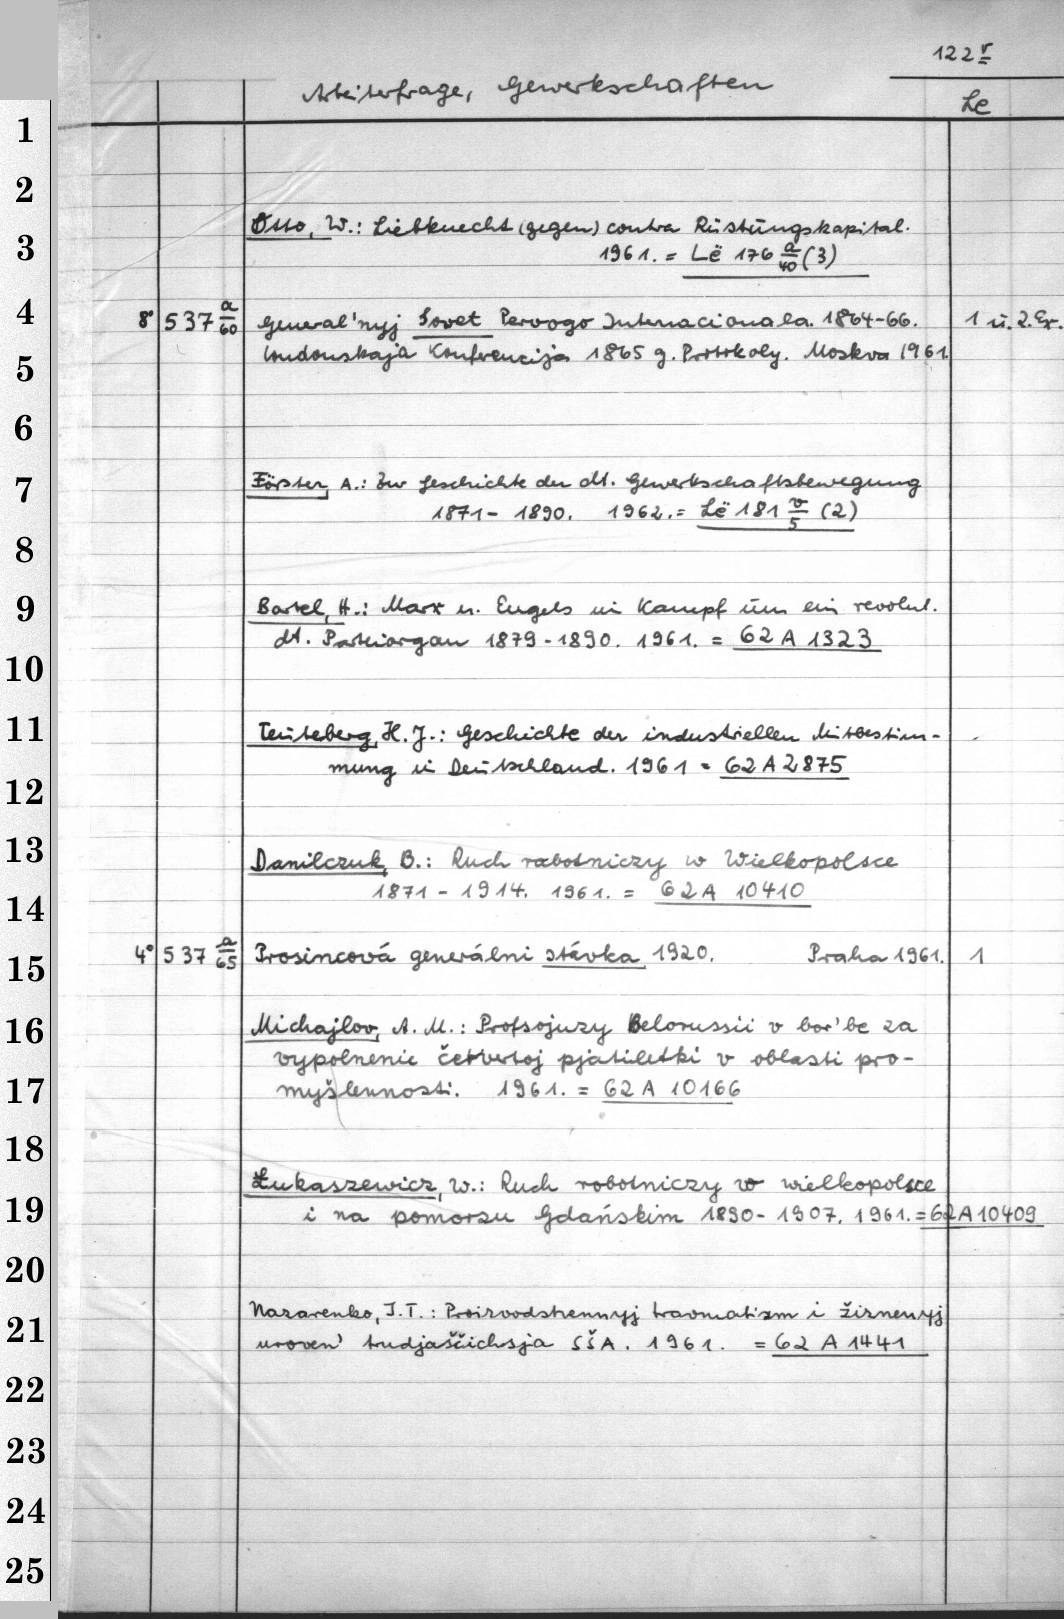 122r
Arbeiterfrage, Gewerkschaften
Le
1
2
Otto, W.: Liebknecht (gegen) contra Rüstungskapital.
3
1961. = Lë 176 a/40 (3)
4
8° 537 a/60 General'nyj Sovet Pervogo Internacionala. 1864-66. 1 u. 2. Ex.
Londonskaja Konferencija 1865 g. Protokoly. Moskva 1961.
5
6
7
Förster, A.: Zur Geschichte der dt. Gewerkschaftsbewegung
1871- 1890. 1962. = Lë 181 v/5 (2)
8
9
Bartel, H.: Marx u. Engels im Kampf um ein revolut.
dt. Parteiorgan 1879-1890. 1961. = 62 A 1323
10
11
Teuteberg, H. J.: Geschichte der industriellen Mitbestim-
mung in Deutschland. 1961 = 62 A 2875
12
13
Danilczuk, B.: Ruch robotniczy w Wielkopolsce
1871 - 1914. 1961. = 62 A 10410
14
15
4° 537 a/65 Prosincová generálni stávka 1920. Praha 1961. 1
16
Michajlov, A. M.: Profsojuzy Belorussii v bor'be za
vypolnenie četvertoj pjatiletki v oblasti pro-
17
myšlennosti. 1961. = 62 A 10166
18
Łukaszewicz, W.: Ruch robotniczy w wielkopolsce
19
i na pomorzu Gdańskim 1890- 1907. 1961. = 62 A 10409
20
21
Nazarenko, I.T.: Proizvodstvennyj travmatizm i žiznennyj
uroven' trudjaščichsja SŠA. 1961. = 62 A 1441
22
23
24
25